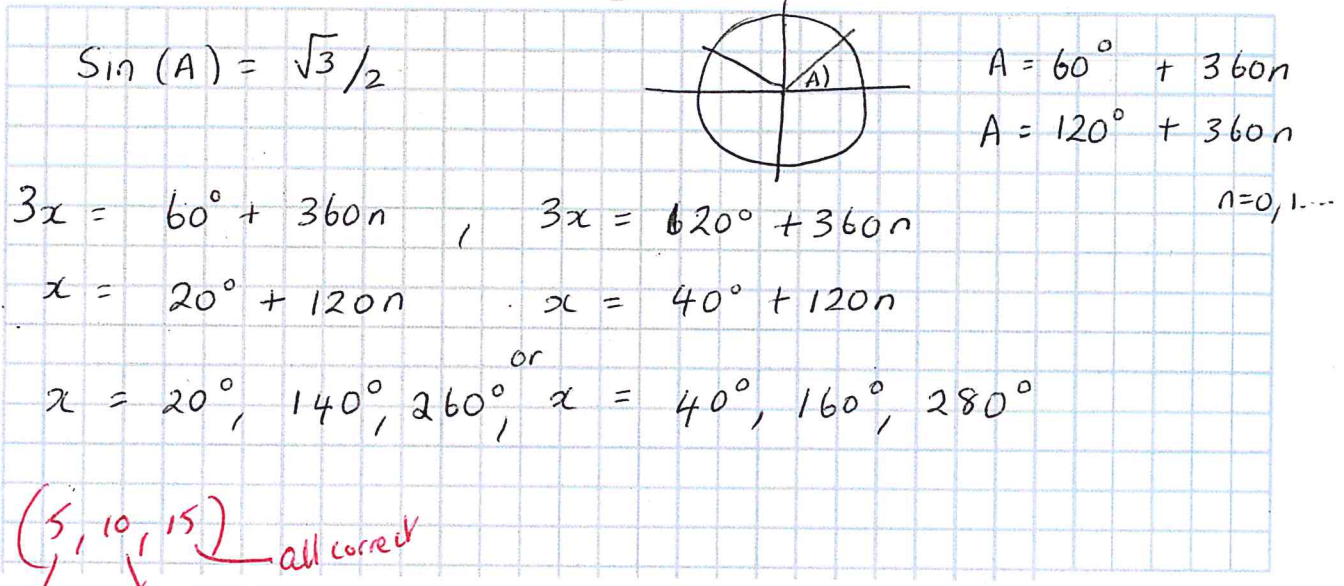 Sin (A) = √3/2
A)
A = 60° + 360n
A = 120° + 360n
n=0,1....
3x = 60° + 360n , 3x = 120° + 360n
x = 20° + 120n x = 40° + 120n
x = 20°, 140°, 260°, or x = 40°, 160°, 280°
(5, 10, 15) all correct